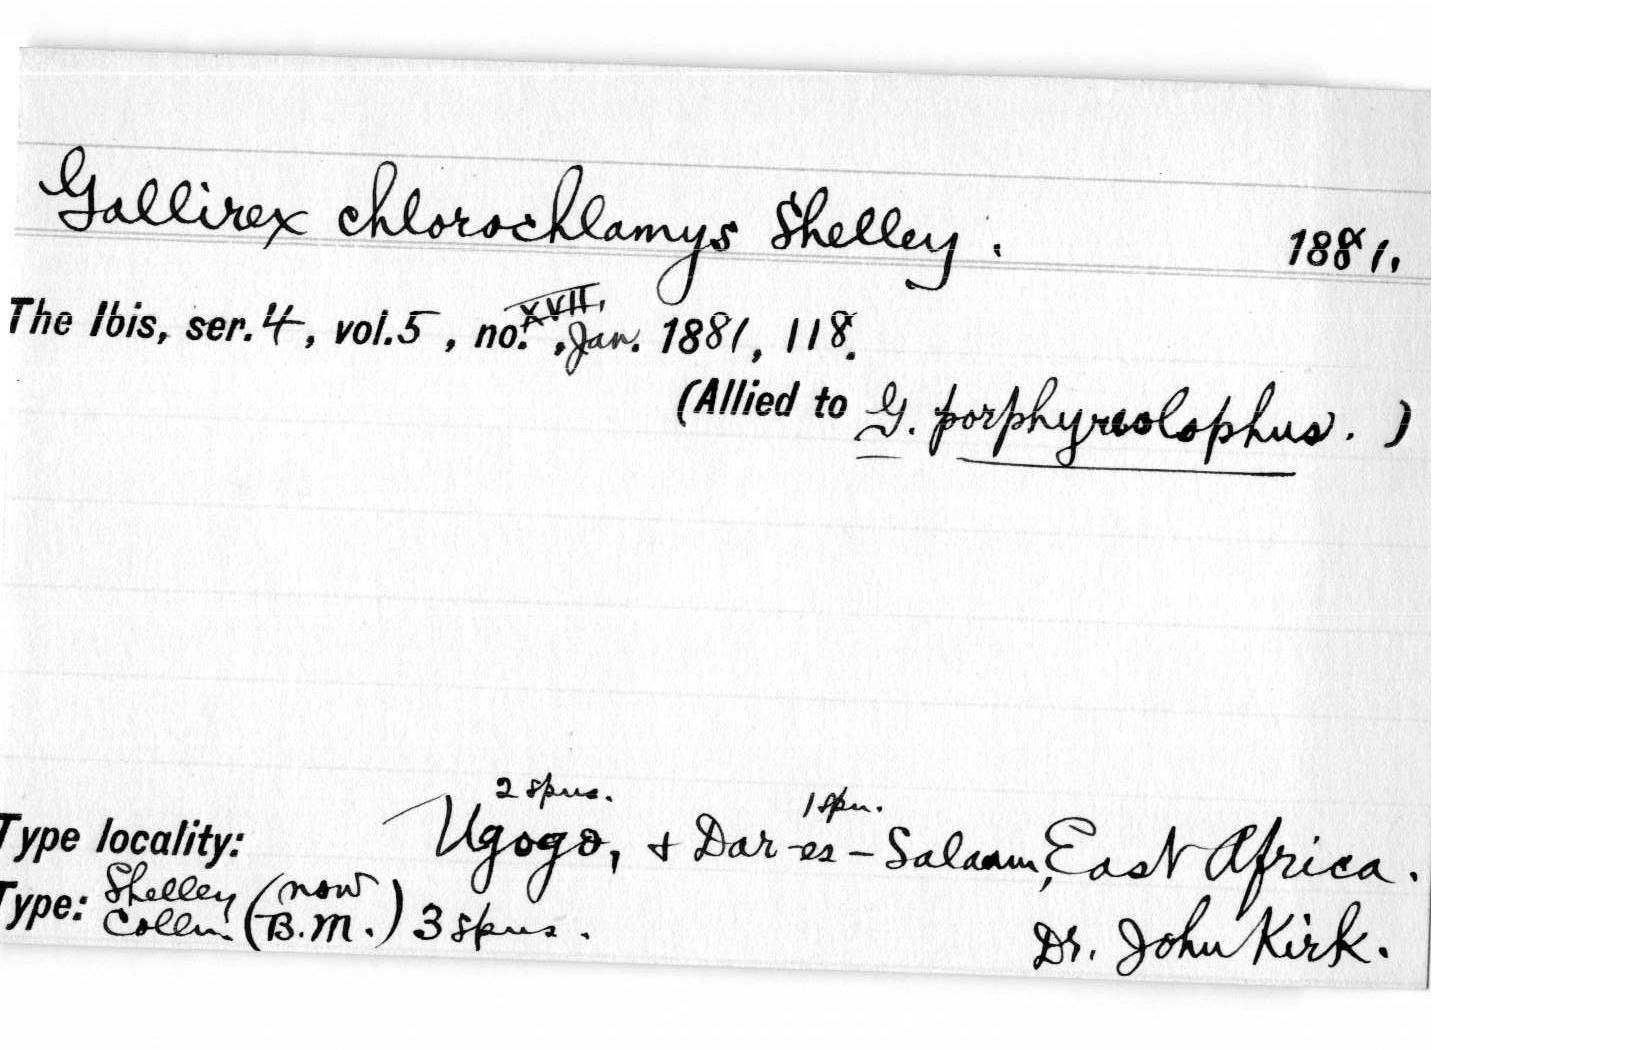 Gallirex chlorochlamys Shelley. 1881.
The Ibis, ser. 4, vol. 5, no. XVII, Jan. 1881, 118.
(Allied to G. porphyreolophus.)
2 spns. 1 spn.
Type locality: Ugogo, + Dar-es-Salaam, East Africa.
Type: Shelley Colln. (now B.M.) 3 spns. Dr. John Kirk.